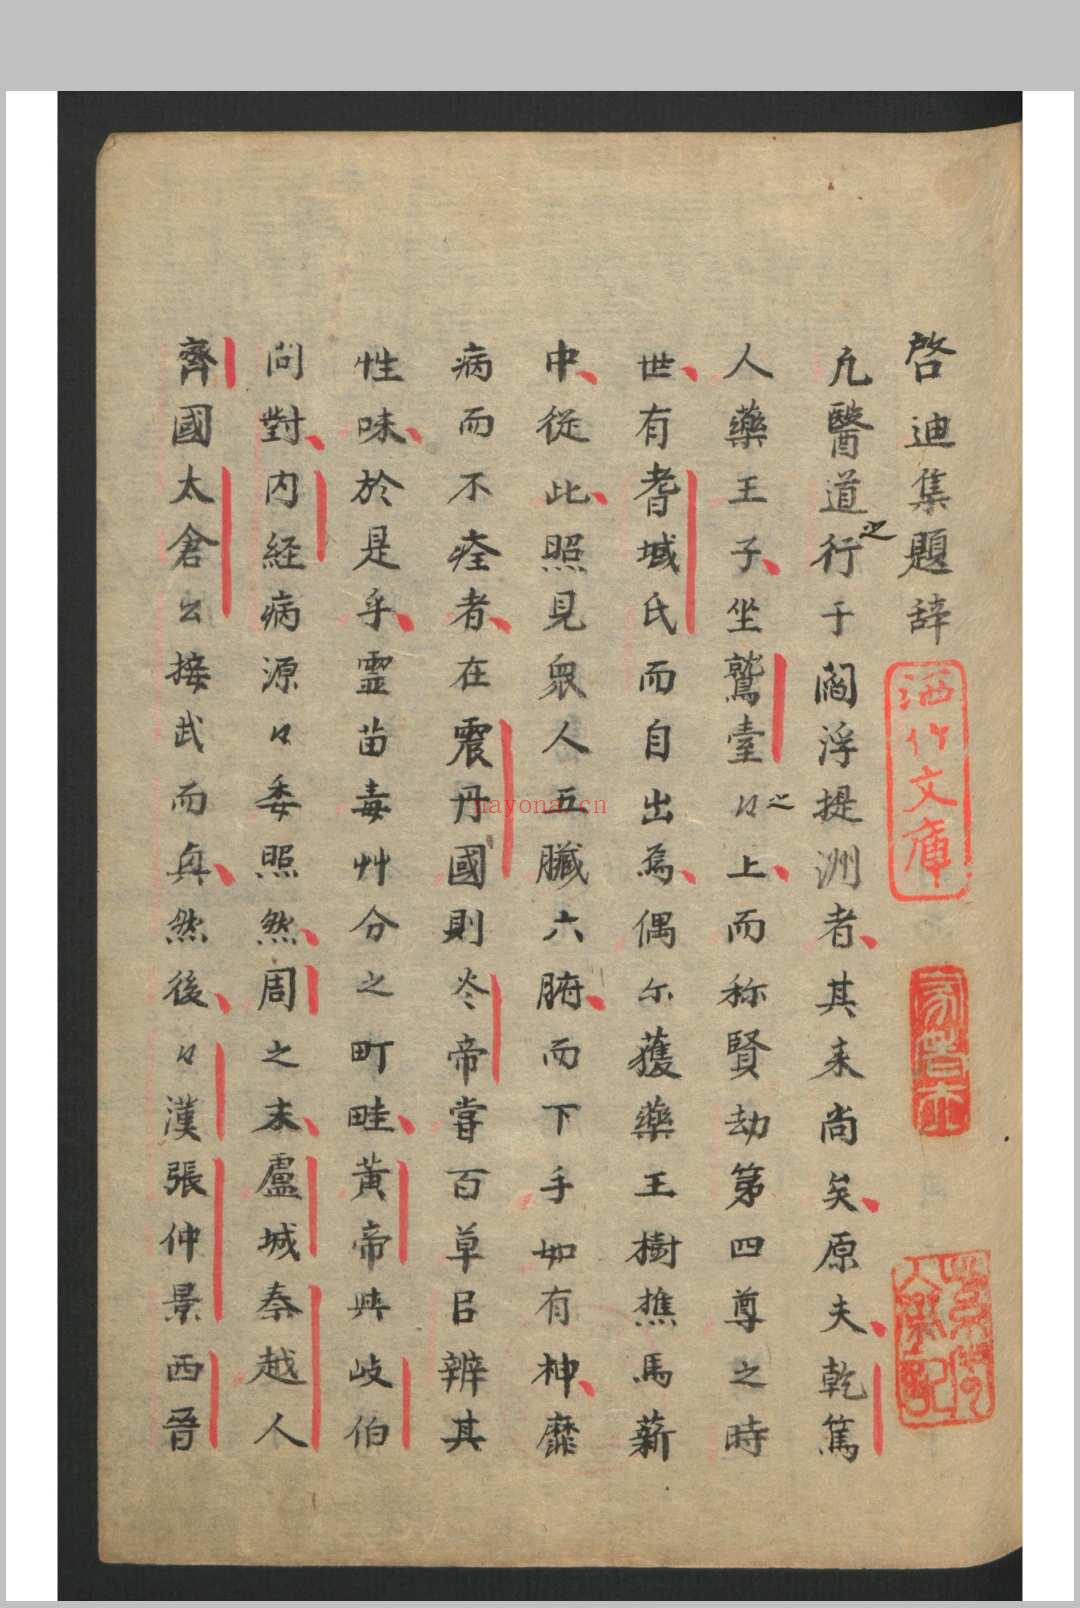 啓迪集題辞
凢醫道之行于閻浮提洲者其来尚矣原夫乾篤
人藥王子坐鷲臺々之上而称賢劫第四尊之時
世有耆域氏而自出為偶尓獲藥王樹樵馬薪
中從此照見衆人五臓六腑而下手如有神靡
病而不痊者在震丹國則炎帝嘗百草㠯辨其
性味於是乎霊苗毒艸分之町畦黃帝與岐伯
問對内経病源々委照然周之末盧城秦越人
齊國太倉公接武而興然後々漢張仲景西晉
洒竹文庫
nayona.cn